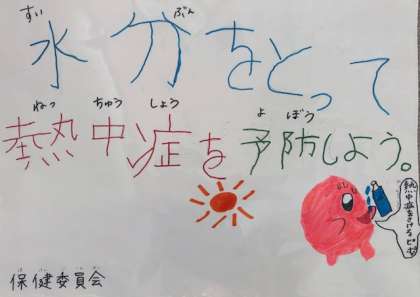 すい ぶん
水分をとって
ねっ ちゅう しょう よ ぼう
熱中症を予防しよう。
保健委員会